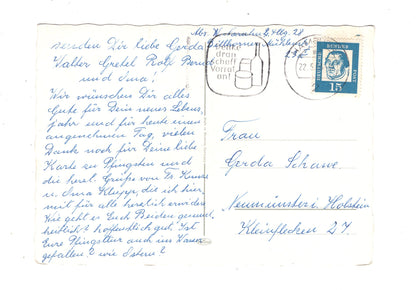 senden Dir liebe Gerda
Walter Gretel Rolf Bernd
und Irna!
Wir wünschen Dir alles
Gute für Dein neues Lebens
jahr und für heute einen
angenehmen Tag, vielen
Dank noch für Deine liebe
Karte zu Pfingsten und
die herzl. Grüße von Fr.
u. Irna Klupp, die ich hier
mit für alle herzlich erwidere
Wie geht es Euch Beiden gesund
heitlich? hoffentlich gut. Ist
Eure Pfingsttour auch ins Wasser
gefallen? wie Ostern?
denk
dran
Vorrat
an!
DEUTSCHE BUNDESPOST
BERLIN
15
Frau
Gerda
Neumünster Holstein
Kleinflecken 27.